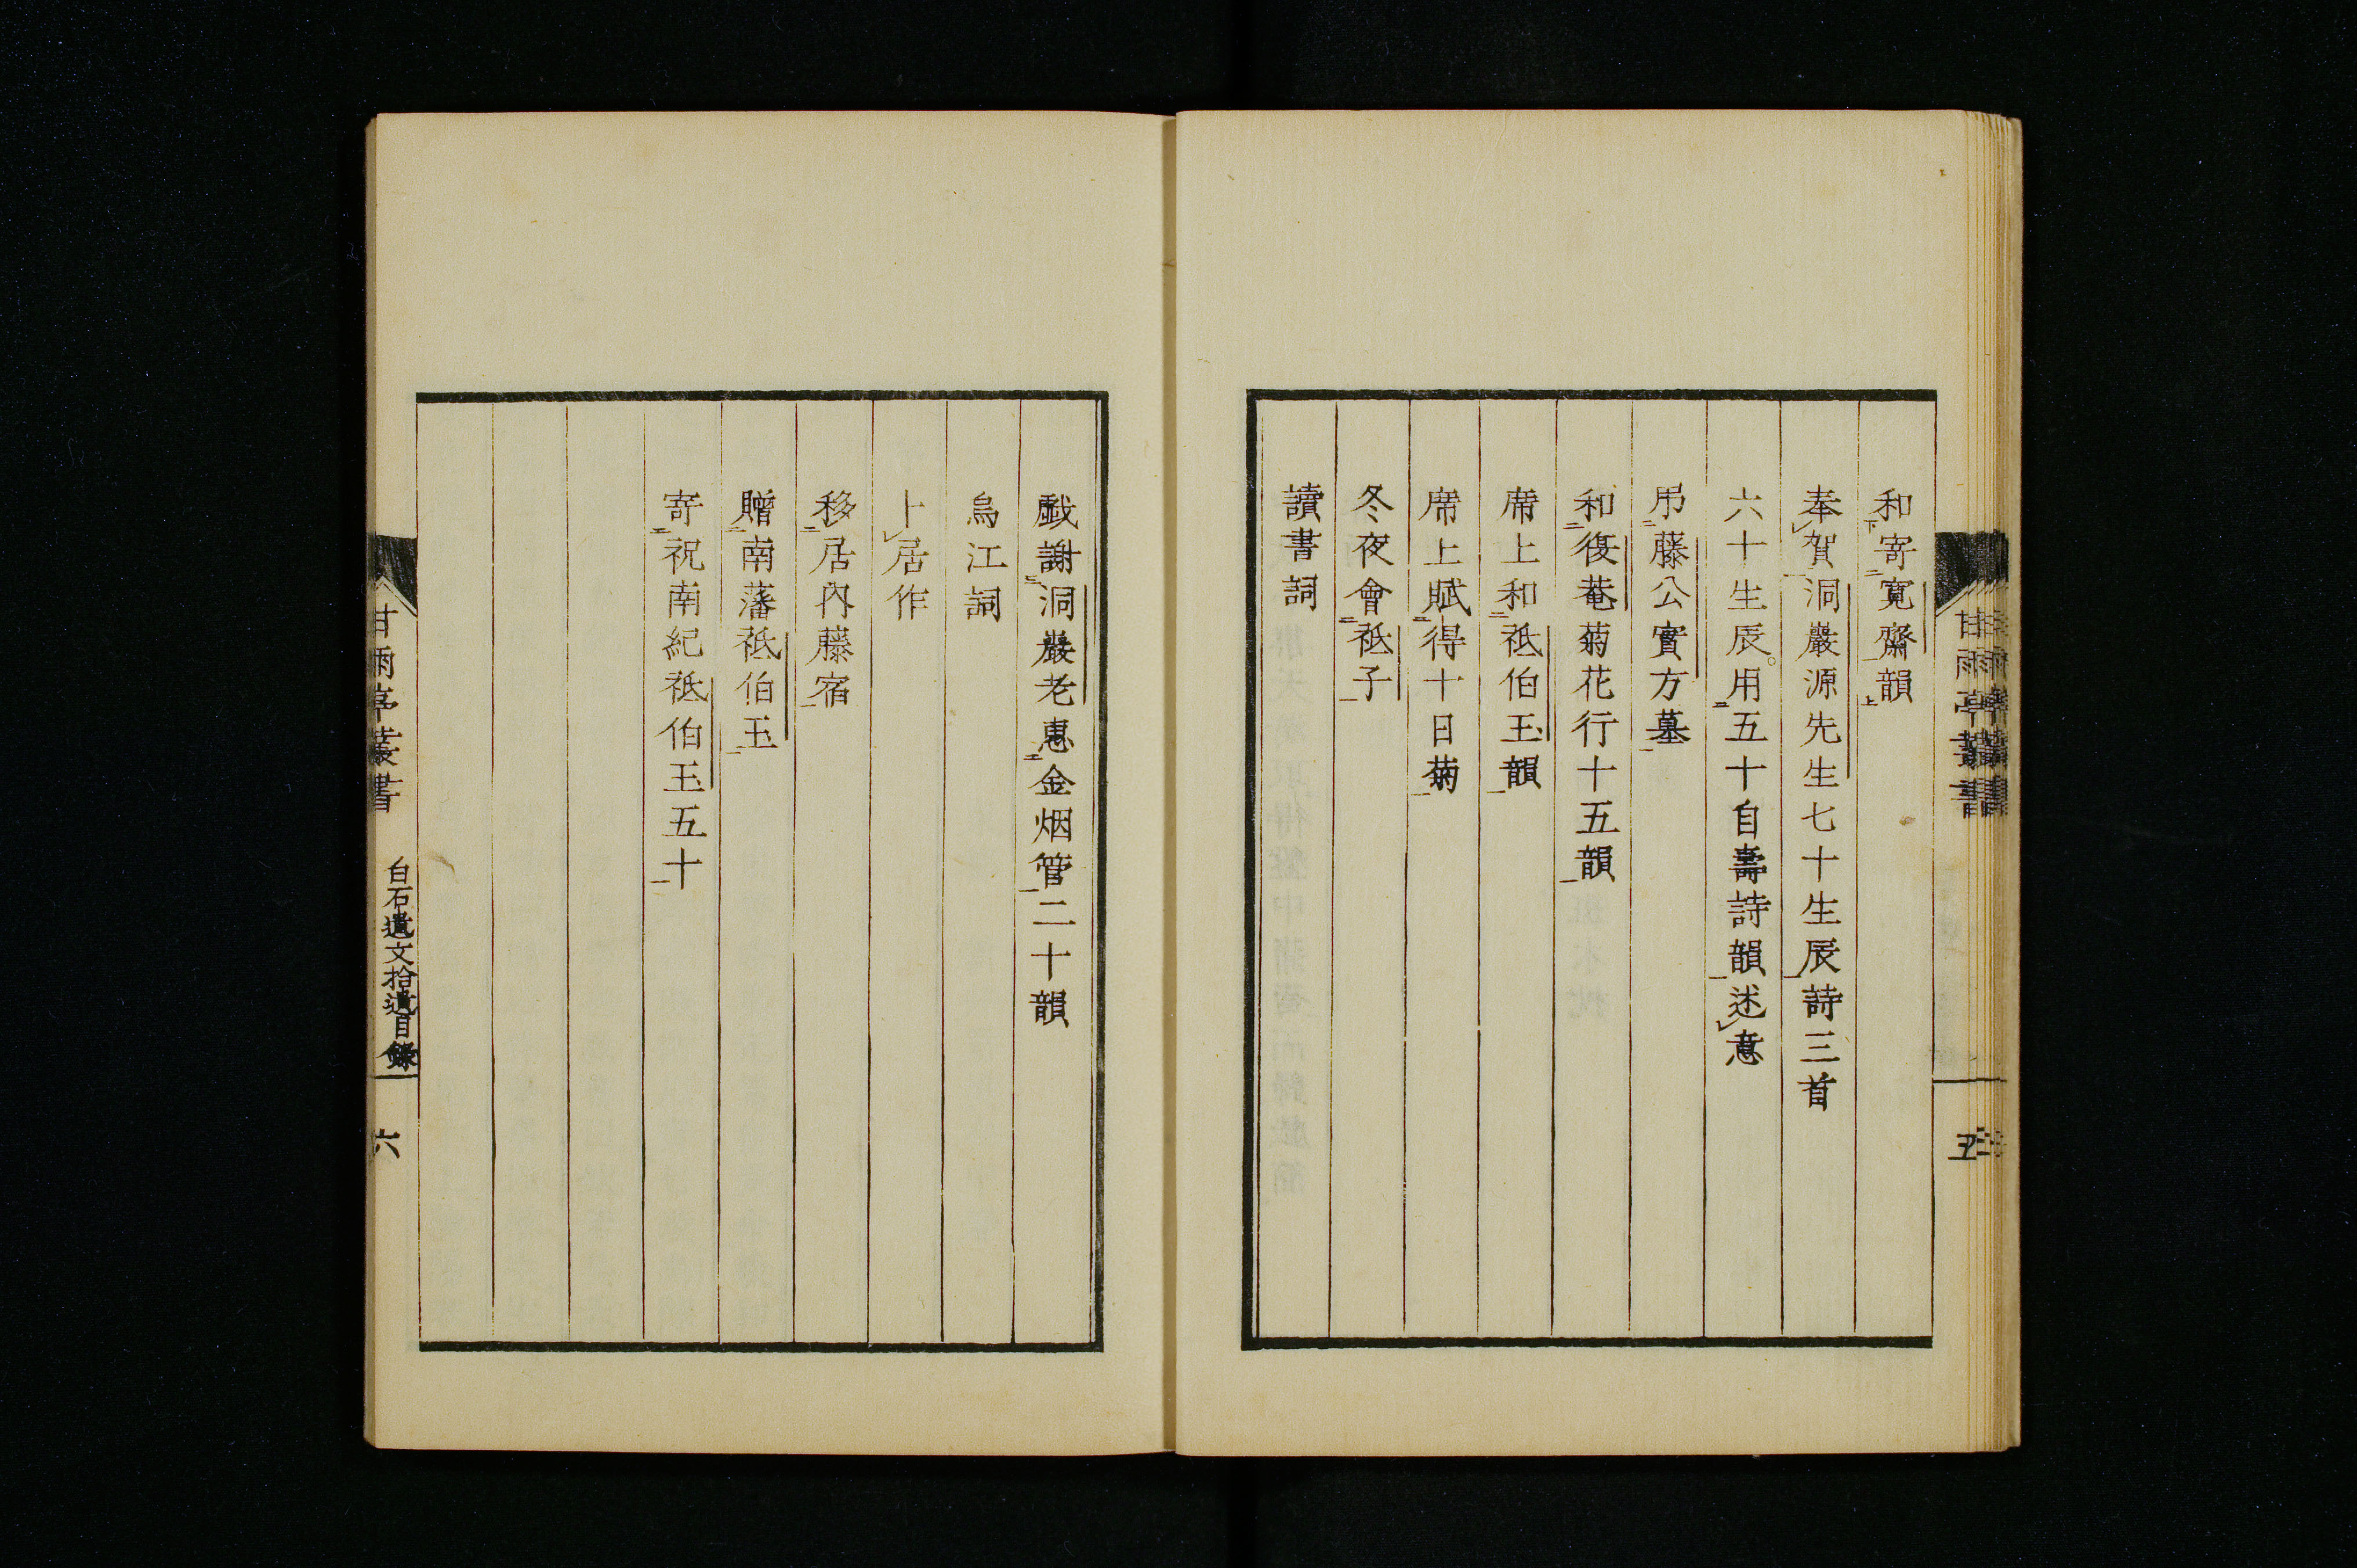 和寄寬齋韻
奉賀洞巖源先生七十生辰詩三首
六十生辰用五十自壽詩韻述意
弔藤公實方墓
和復菴菊花行十五韻
席上和祗伯玉韻
席上賦得十日菊
冬夜會祗子
讀書詞
戲謝洞巖老惠金烟管二十韻
烏江詞
卜居作
移居內藤宿
贈南藩祗伯玉
寄祝南紀祗伯玉五十
甘雨亭叢書
白石遺文拾遺目錄
六